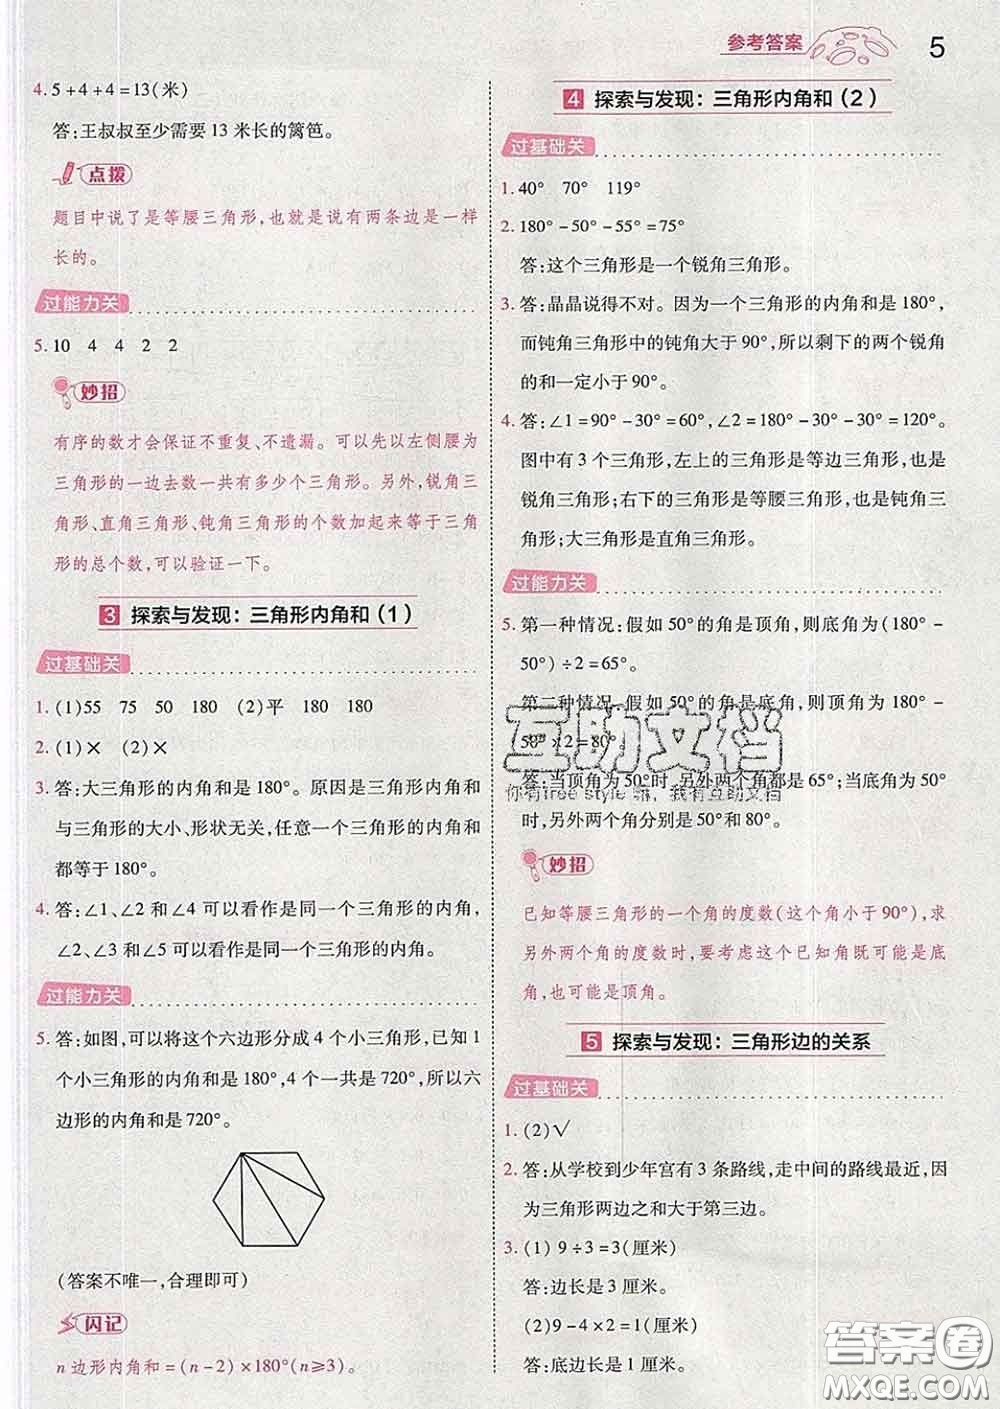 参考答案 5
4. 5+4+4=13(米)
答:王叔叔至少需要 13 米长的篱笆。
点拨
题目中说了是等腰三角形,也就是说有两条边是一样
长的。
过能力关
5. 10 4 4 2 2
妙招
有序的数才会保证不重复、不遗漏。可以先以左侧腰为
三角形的一边去数一共有多少个三角形。另外,锐角三
角形、直角三角形、钝角三角形的个数加起来等于三角
形的总个数,可以验证一下。
3 探索与发现：三角形内角和（1）
过基础关
1. (1)55 75 50 180 (2)平 180 180
2. (1)× (2)×
3. 答:大三角形的内角和是 180°。原因是三角形内角和
与三角形的大小、形状无关,任意一个三角形的内角和
都等于 180°。
4. 答:∠1、∠2 和∠4 可以看作是同一个三角形的内角,
∠2、∠3 和∠5 可以看作是同一个三角形的内角。
过能力关
5. 答:如图,可以将这个六边形分成 4 个小三角形,已知 1
个小三角形的内角和是 180°,4 个一共是 720°,所以六
边形的内角和是 720°。
(答案不唯一,合理即可)
闪记
n 边形内角和=(n-2)×180°(n≥3)。
4 探索与发现：三角形内角和（2）
过基础关
1. 40° 70° 119°
2. 180°-50°-55°=75°
答:这个三角形是一个锐角三角形。
3. 答:晶晶说得不对。因为一个三角形的内角和是 180°,
而钝角三角形中的钝角大于 90°,所以剩下的两个锐角
的和一定小于 90°。
4. 答:∠1=90°-30°=60°,∠2=180°-30°-30°=120°。
图中有 3 个三角形,左上的三角形是等边三角形,也是
锐角三角形;右下的三角形是等腰三角形,也是钝角三
角形;大三角形是直角三角形。
过能力关
5. 第一种情况:假如 50°的角是顶角,则底角为(180°-
50°)÷2=65°。
第二种情况:假如 50°的角是底角,则顶角为 180°-
50°×2=80°
答:当顶角为 50°时,另外两个角都是 65°;当底角为 50°
时,另外两个角分别是 50°和 80°。
互助文档
你有free style 嘛，我有互助文档
妙招
已知等腰三角形的一个角的度数(这个角小于 90°),求
另外两个角的度数时,要考虑这个已知角可能是底
角,也可能是顶角。
5 探索与发现：三角形边的关系
过基础关
1. (2)√
2. 答:从学校到少年宫有 3 条路线,走中间的路线最近,因
为三角形两边之和大于第三边。
3. (1) 9÷3=3(厘米)
答:边长是 3 厘米。
(2)9-4×2=1(厘米)
答:底边长是 1 厘米。
答案圈
MXQE.COM